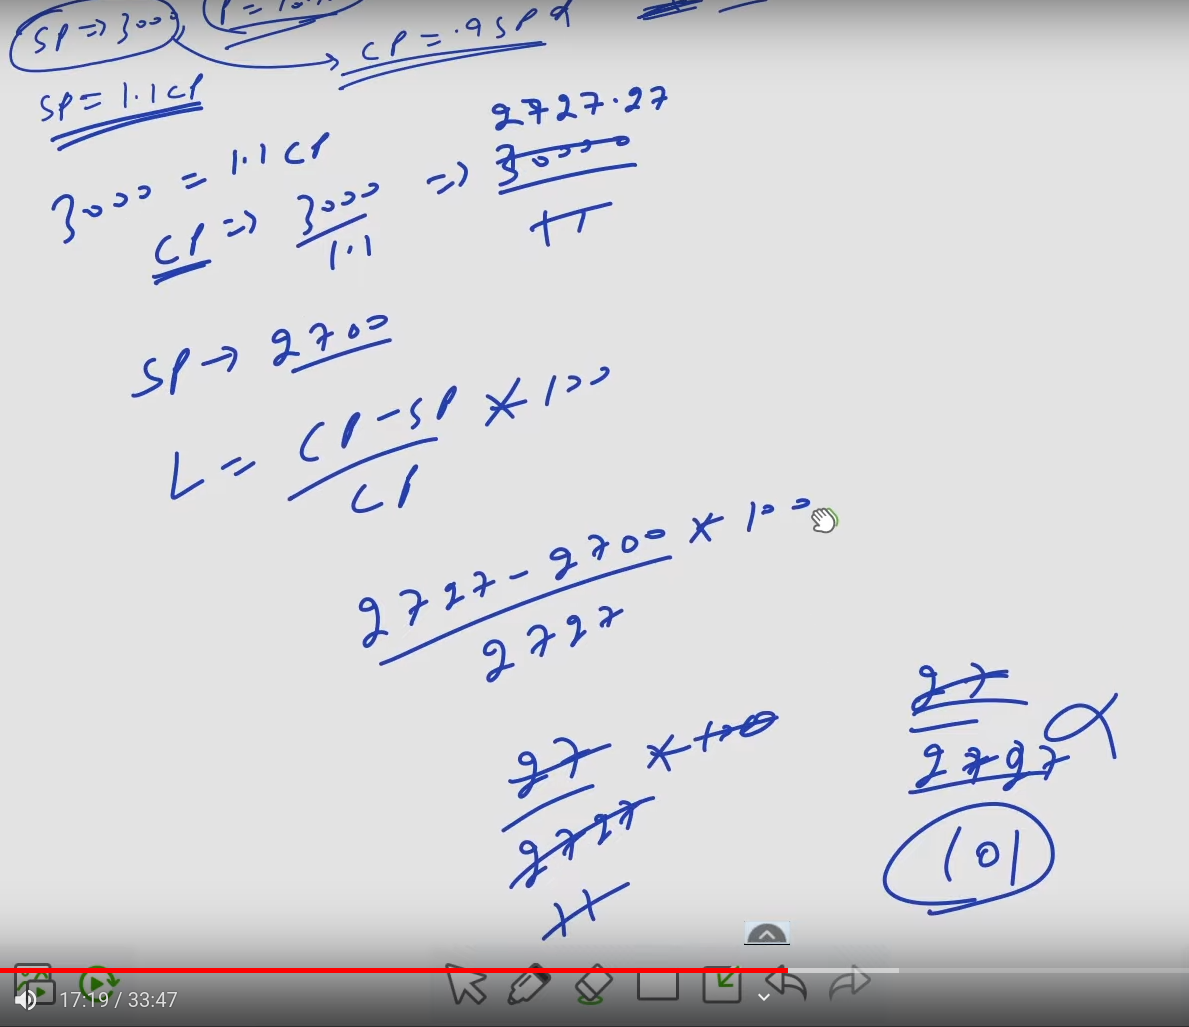 SP => 3000
CP = .9 SP
SP = 1.1 CP
3000 = 1.1 CP
CP => 3000/1.1 => 30000/11
2727.27
SP → 2700
L = CP - SP/CP * 100
2727 - 2700/2727 * 100
27/2727 * 100
11
27/2727
101
17:19 / 33:47